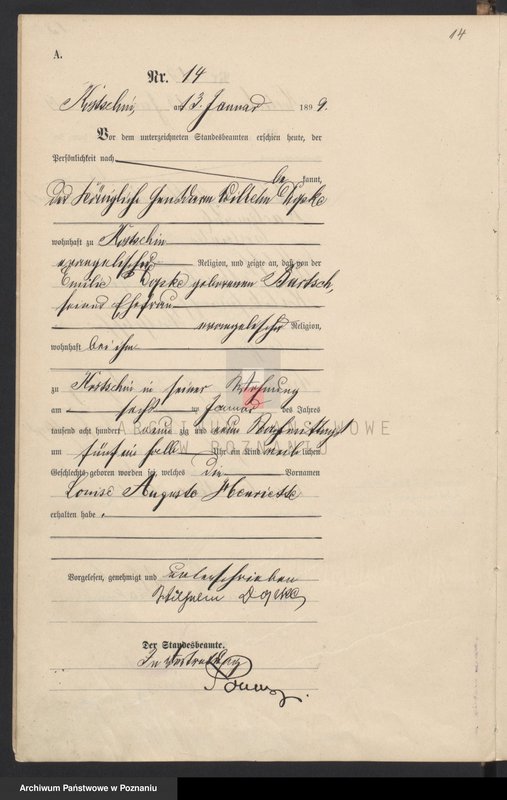 14
A.
Nr. 14
Kostschin, am 13. Januar 1899.
Vor dem unterzeichneten Standesbeamten erschien heute, der
Persönlichkeit nach
be kannt,
der Königliche Gendarm Wilhelm Dopke
wohnhaft zu Kostschin
evangelischer Religion, und zeigte an, daß von der
Emilie Dopke geborenen Bartsch,
seiner Ehefrau
evangelischer Religion,
wohnhaft bei ihm
zu Kostschin in seiner Wohnung
am sechs ten Januar des Jahres
tausend acht hundert neun zig und neun Nachmittags
um fünf ein halb Uhr ein Kind weib lichen
Geschlechts geboren worden sei, welches die Vornamen
Louise Auguste Henriette
erhalten habe.
ARCHIWUM PAŃSTWOWE
W POZNANIU
Vorgelesen, genehmigt und unterschrieben
Wilhelm Dopke
Der Standesbeamte.
In Vertretung
Archiwum Państwowe w Poznaniu